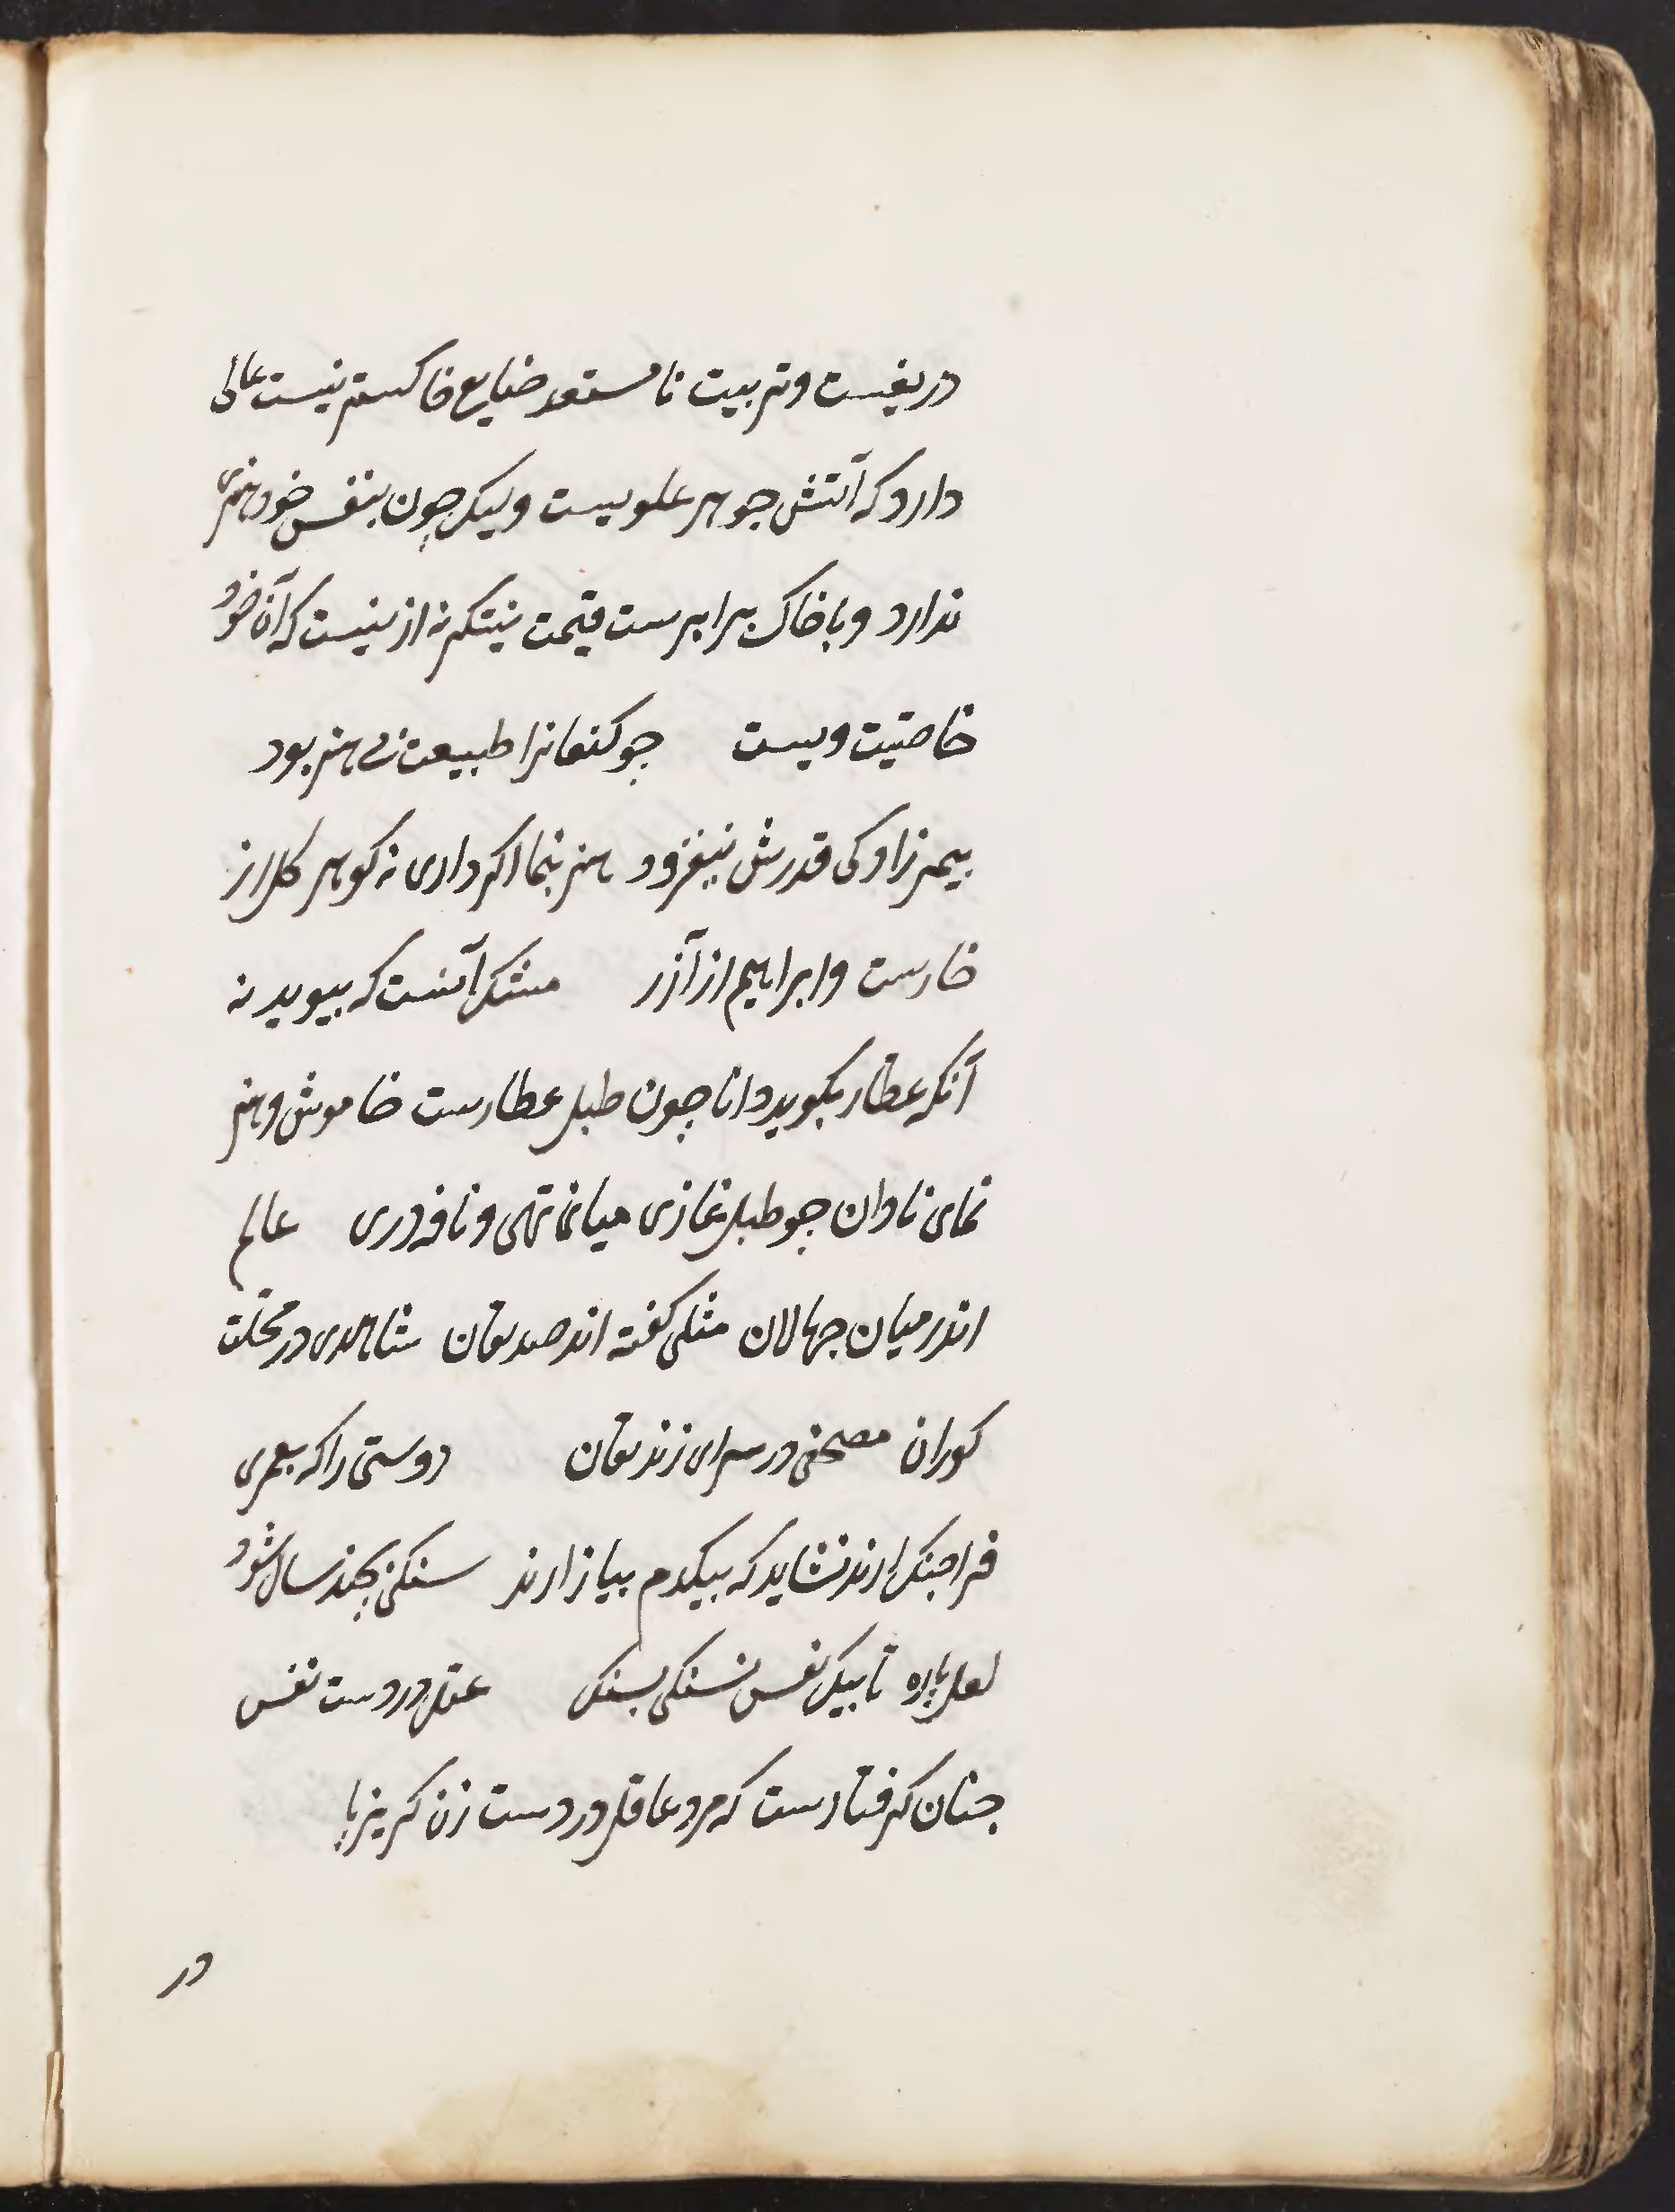 دریغست وتربیت نامستعد ضایع خاکستر نیست عالی
دارد که آتش جوهر علویست ولیک چون بنفس خود هنری
ندارد وبا خاک برابرست قیمت نیشکر نه از نیست که آن خود
خاصیت ویست چو کنعانرا طبیعت بی هنر بود
پیمبرزادکی قدرش نیفزود هنر بنما اکر داری نه کوهر کل از
خارست وابراهیم از آزر مشک آنست که ببوید نه
آنکه عطار بکوید دانا چون طبل عطارست خاموش وهنر
نمای نادان چو طبل غازی میانتهی و عالم
اندر میان جهالان مثلی کفته اند صدیقان شاهدی در محلت
کوران مصحفی در سرای زندیقان دوستی را که بعمری
فراجنک ارند نشاید که بیکدم بیازارند سنکی بچند سال شود
لعل پاره تا بیک نفس بسنک عقل در دست نفس
چنان کرفتارست که مرد عاقل در دست زن کریز پا
در